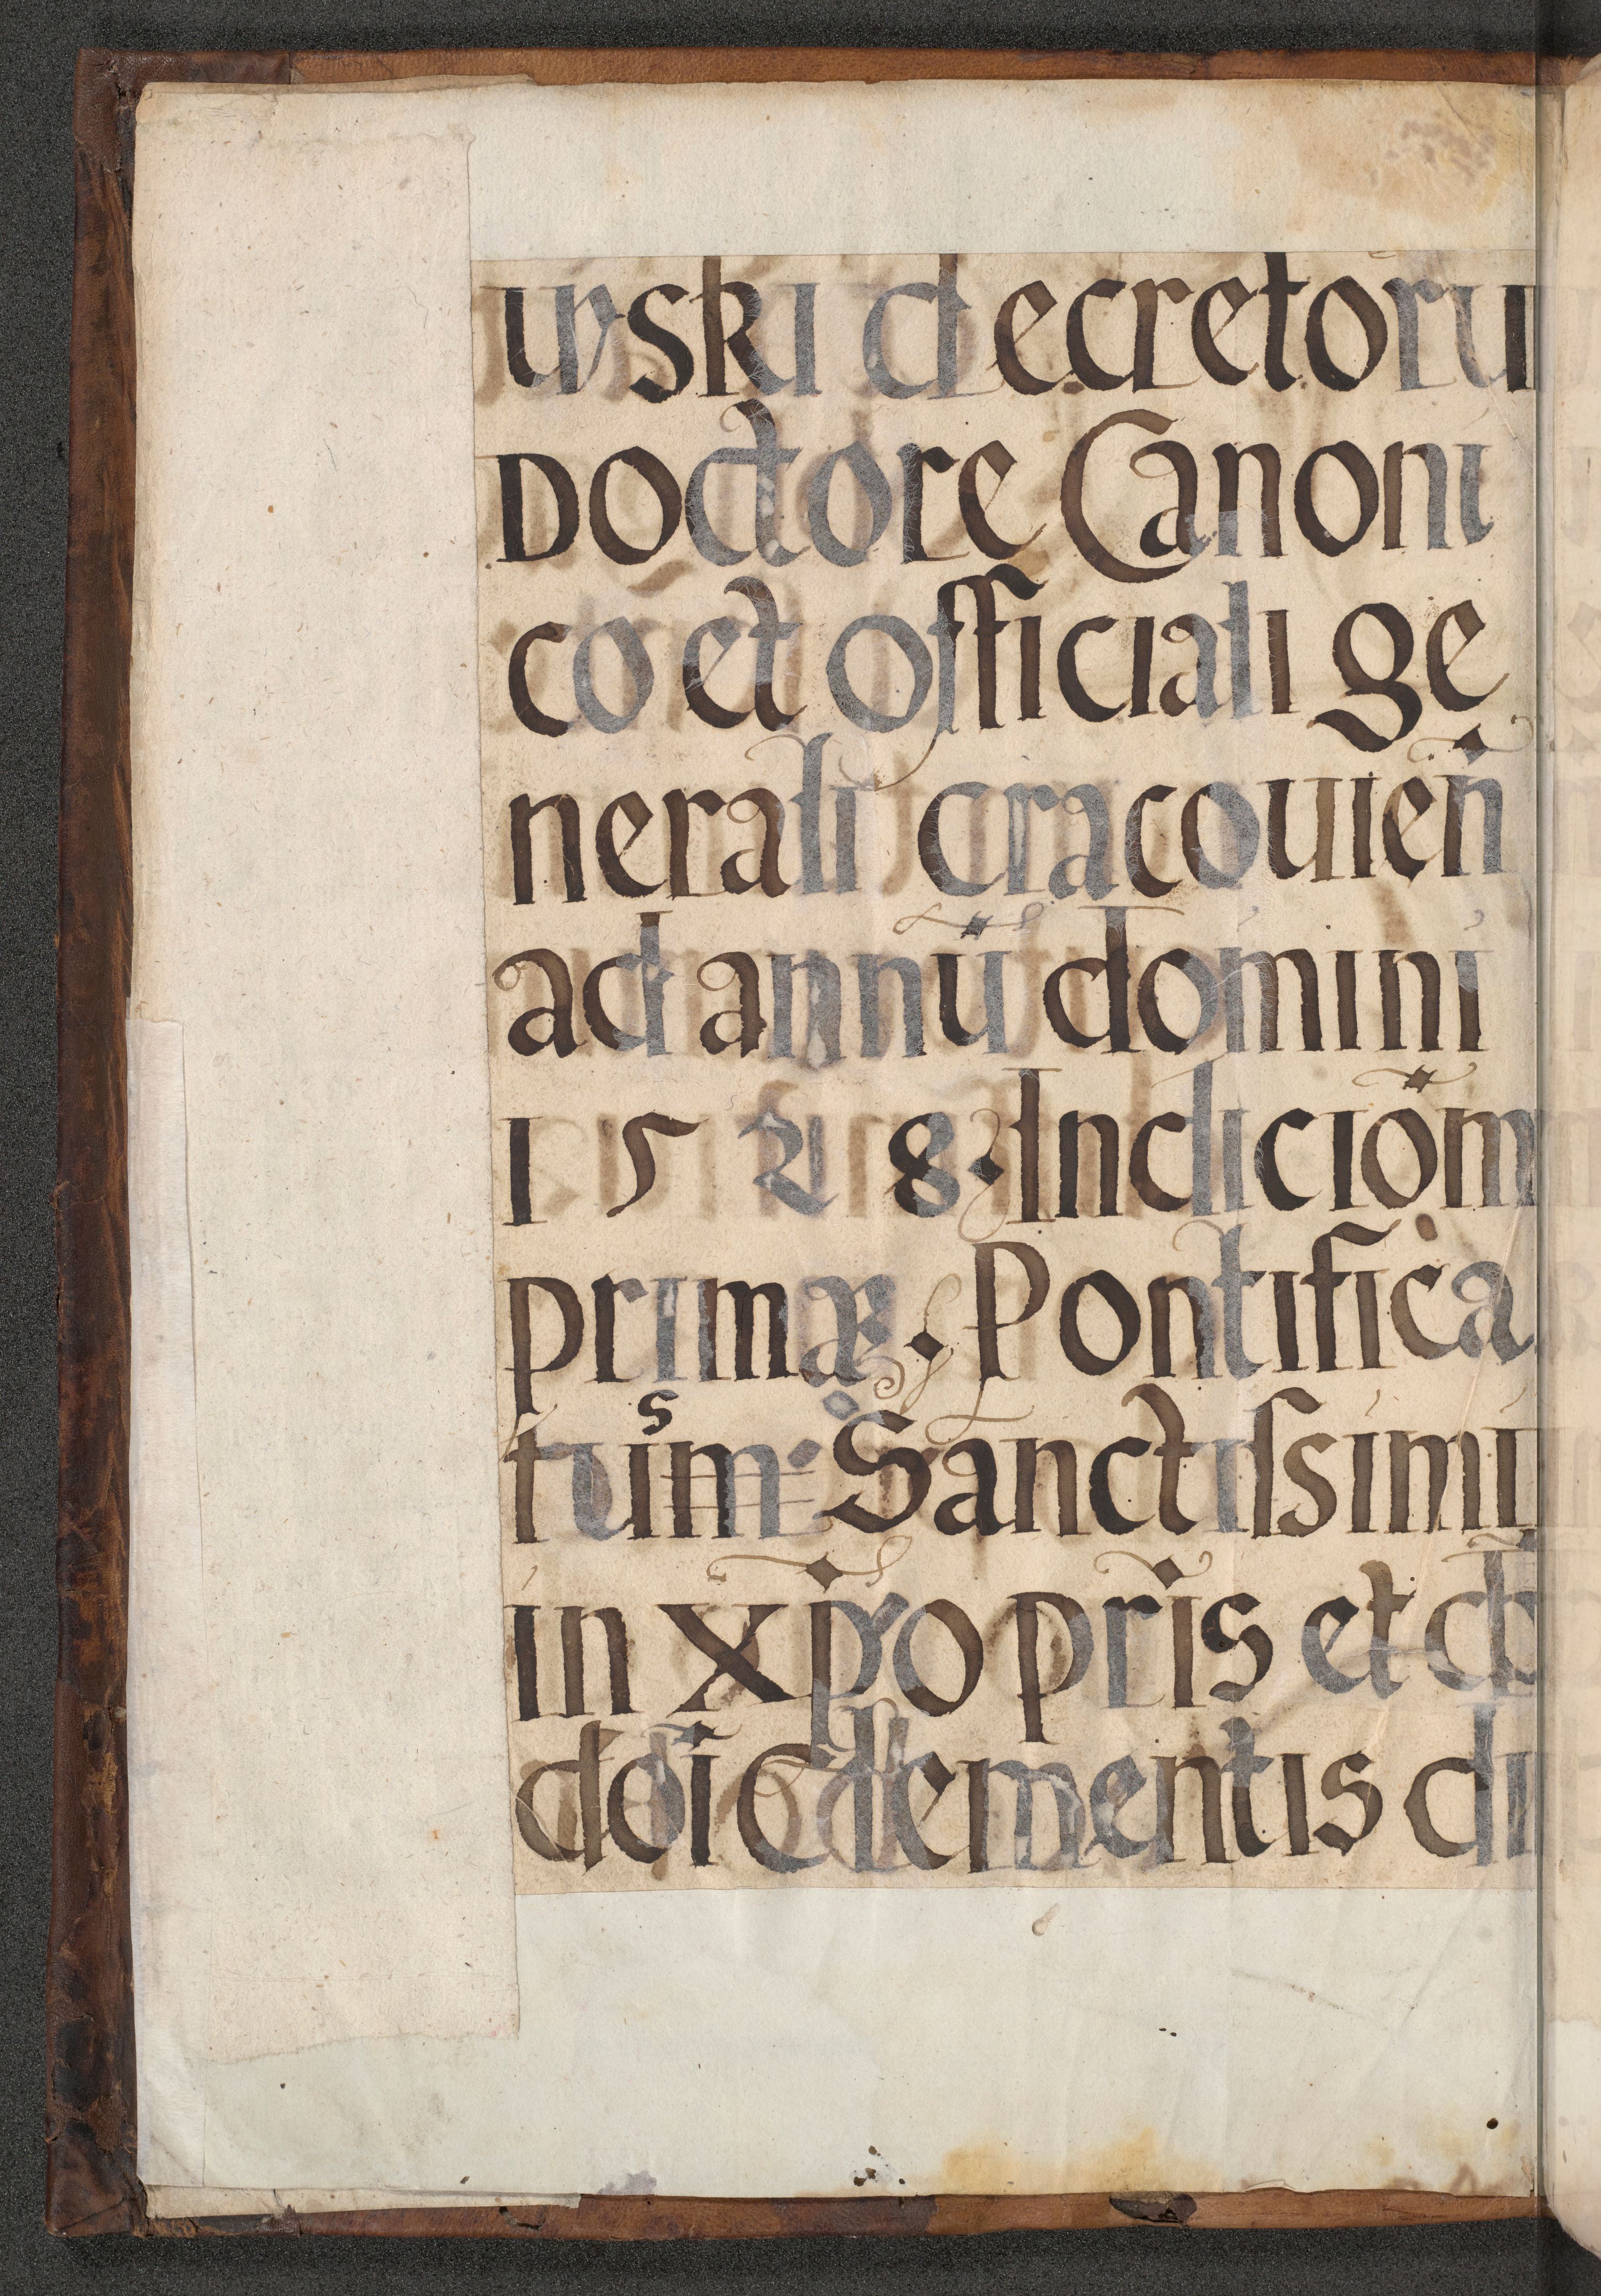 wski decretoru
Doctore Canoni
co et officiali ge
nerali cracouień
ad annū domini
1528. Indiciom̄
primæ. Pontifica
tusm. Sanctissimi
in xp̄o pr̄is et
doī Clementis di